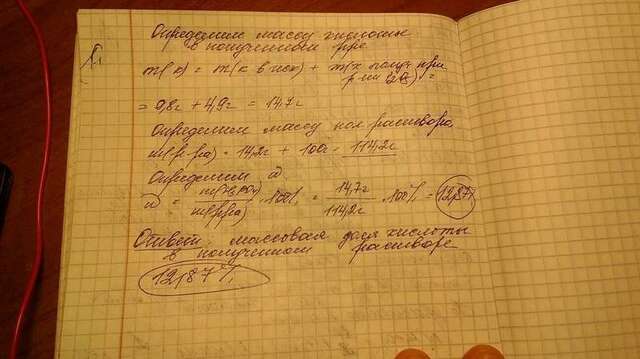 Определим массу кислоты
в полученном р-ре
m(к) = m(к в исх) + m(к получ при
р-ии (2)) =
= 9,8г + 4,9г = 14,7г
Определим массу пол раствора
m(р-ра) = 14,2г + 100г = 114,2г
Определим w
w = m(H₃PO₄) / m(р-ра) · 100% = 14,7г / 114,2г · 100% = 12,87%
Ответ: массовая доля кислоты
в полученном растворе
12,87%